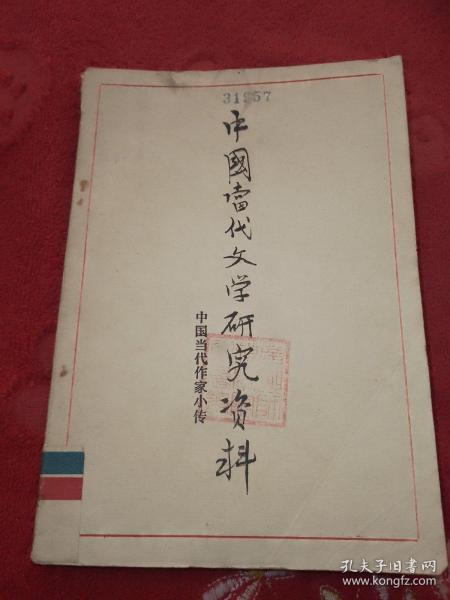 31957
中國當代文学研究资料
中国当代作家小传
孔夫子旧书网
www.kongfz.com